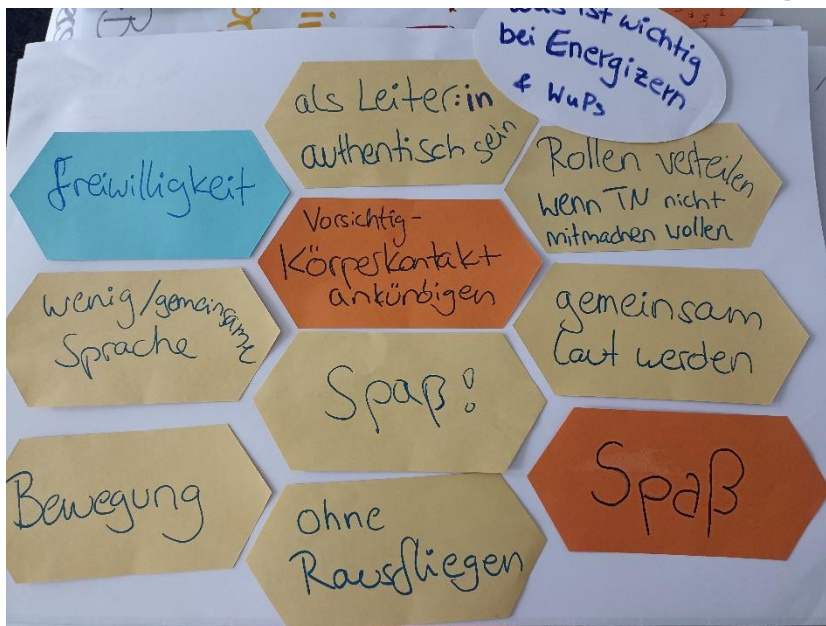 was ist wichtig
bei Energizern
& WuPs
als Leiter:in
authentisch sein
freiwilligkeit
Rollen verteilen
wenn TN nicht
mitmachen wollen
Vorsichtig -
Körperkontakt
ankündigen
wenig/gemeinsame
Sprache
gemeinsam
laut werden
Spaß!
Bewegung
ohne
Rausfliegen
Spaß